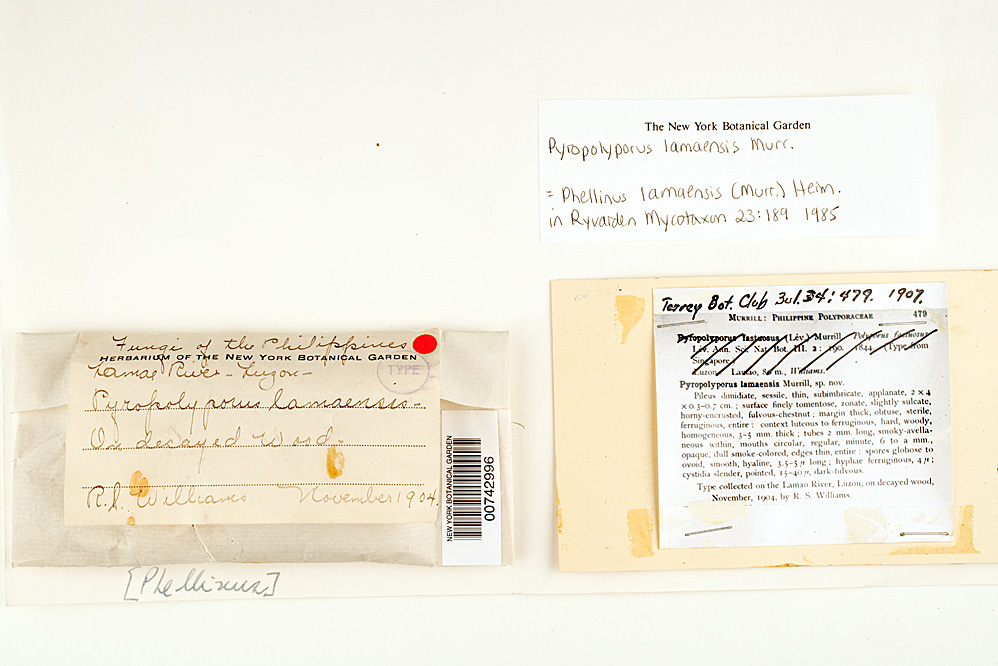 The New York Botanical Garden
Pyropolyporus lamaensis Murr.
= Phellinus lamaensis (Murr.) Heim.
in Ryvarden Mycotaxon 23:189 1985
Torrey Bot. Club Bul. 34: 479. 1907.
MURRILL: PHILIPPINE POLYPORACEAE 479
Pyropolyporus fastuosus (Lév.) Murrill Polyporus fastuosus
Lév. Ann. Sci. Nat. Bot. III. 2: 190. 1844. (Type from
Singapore.)
Luzon: Lamao, 80 m., Williams.
Pyropolyporus lamaensis Murrill, sp. nov.
Pileus dimidiate, sessile, thin, subimbricate, applanate, 2 × 4
× 0.3–0.7 cm.; surface finely tomentose, zonate, slightly sulcate,
horny-encrusted, fulvous-chestnut; margin thick, obtuse, sterile,
ferruginous, entire: context luteous to ferruginous, hard, woody,
homogeneous, 3–5 mm. thick; tubes 2 mm. long, smoky-avella-
neous within, mouths circular, regular, minute, 6 to a mm.,
opaque, dull smoke-colored, edges thin, entire: spores globose to
ovoid, smooth, hyaline, 3.5–5 μ long; hyphae ferruginous, 4 μ;
cystidia slender, pointed, 15–40 μ, dark-fulvous.
Type collected on the Lamao River, Luzon, on decayed wood,
November, 1904, by R. S. Williams.
Fungi of the Philippines
HERBARIUM OF THE NEW YORK BOTANICAL GARDEN
TYPE
Lamao River - Luzon -
Pyropolyporus lamaensis -
On decayed Wood -
R.S. Williams November 1904.
NEW YORK BOTANICAL GARDEN
00742996
[Phellinus]